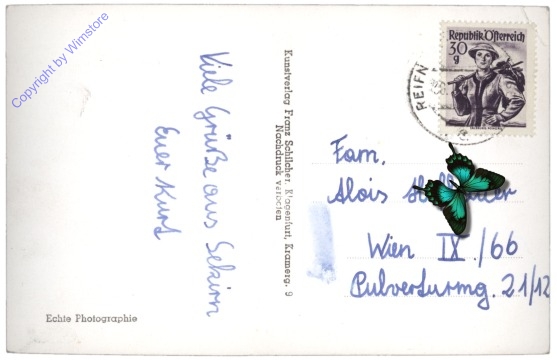 Copyright by Wimstore
Viele Grüße aus Sekirn
Euer Kurt
Echte Photographie
Kunstverlag Franz Schilcher, Klagenfurt, Kramerg. 9
Nachdruck verboten
Republik Österreich
30
g
REIFN
Fam.
Alois
Wien IX./66
Pulverturmg. 21/12